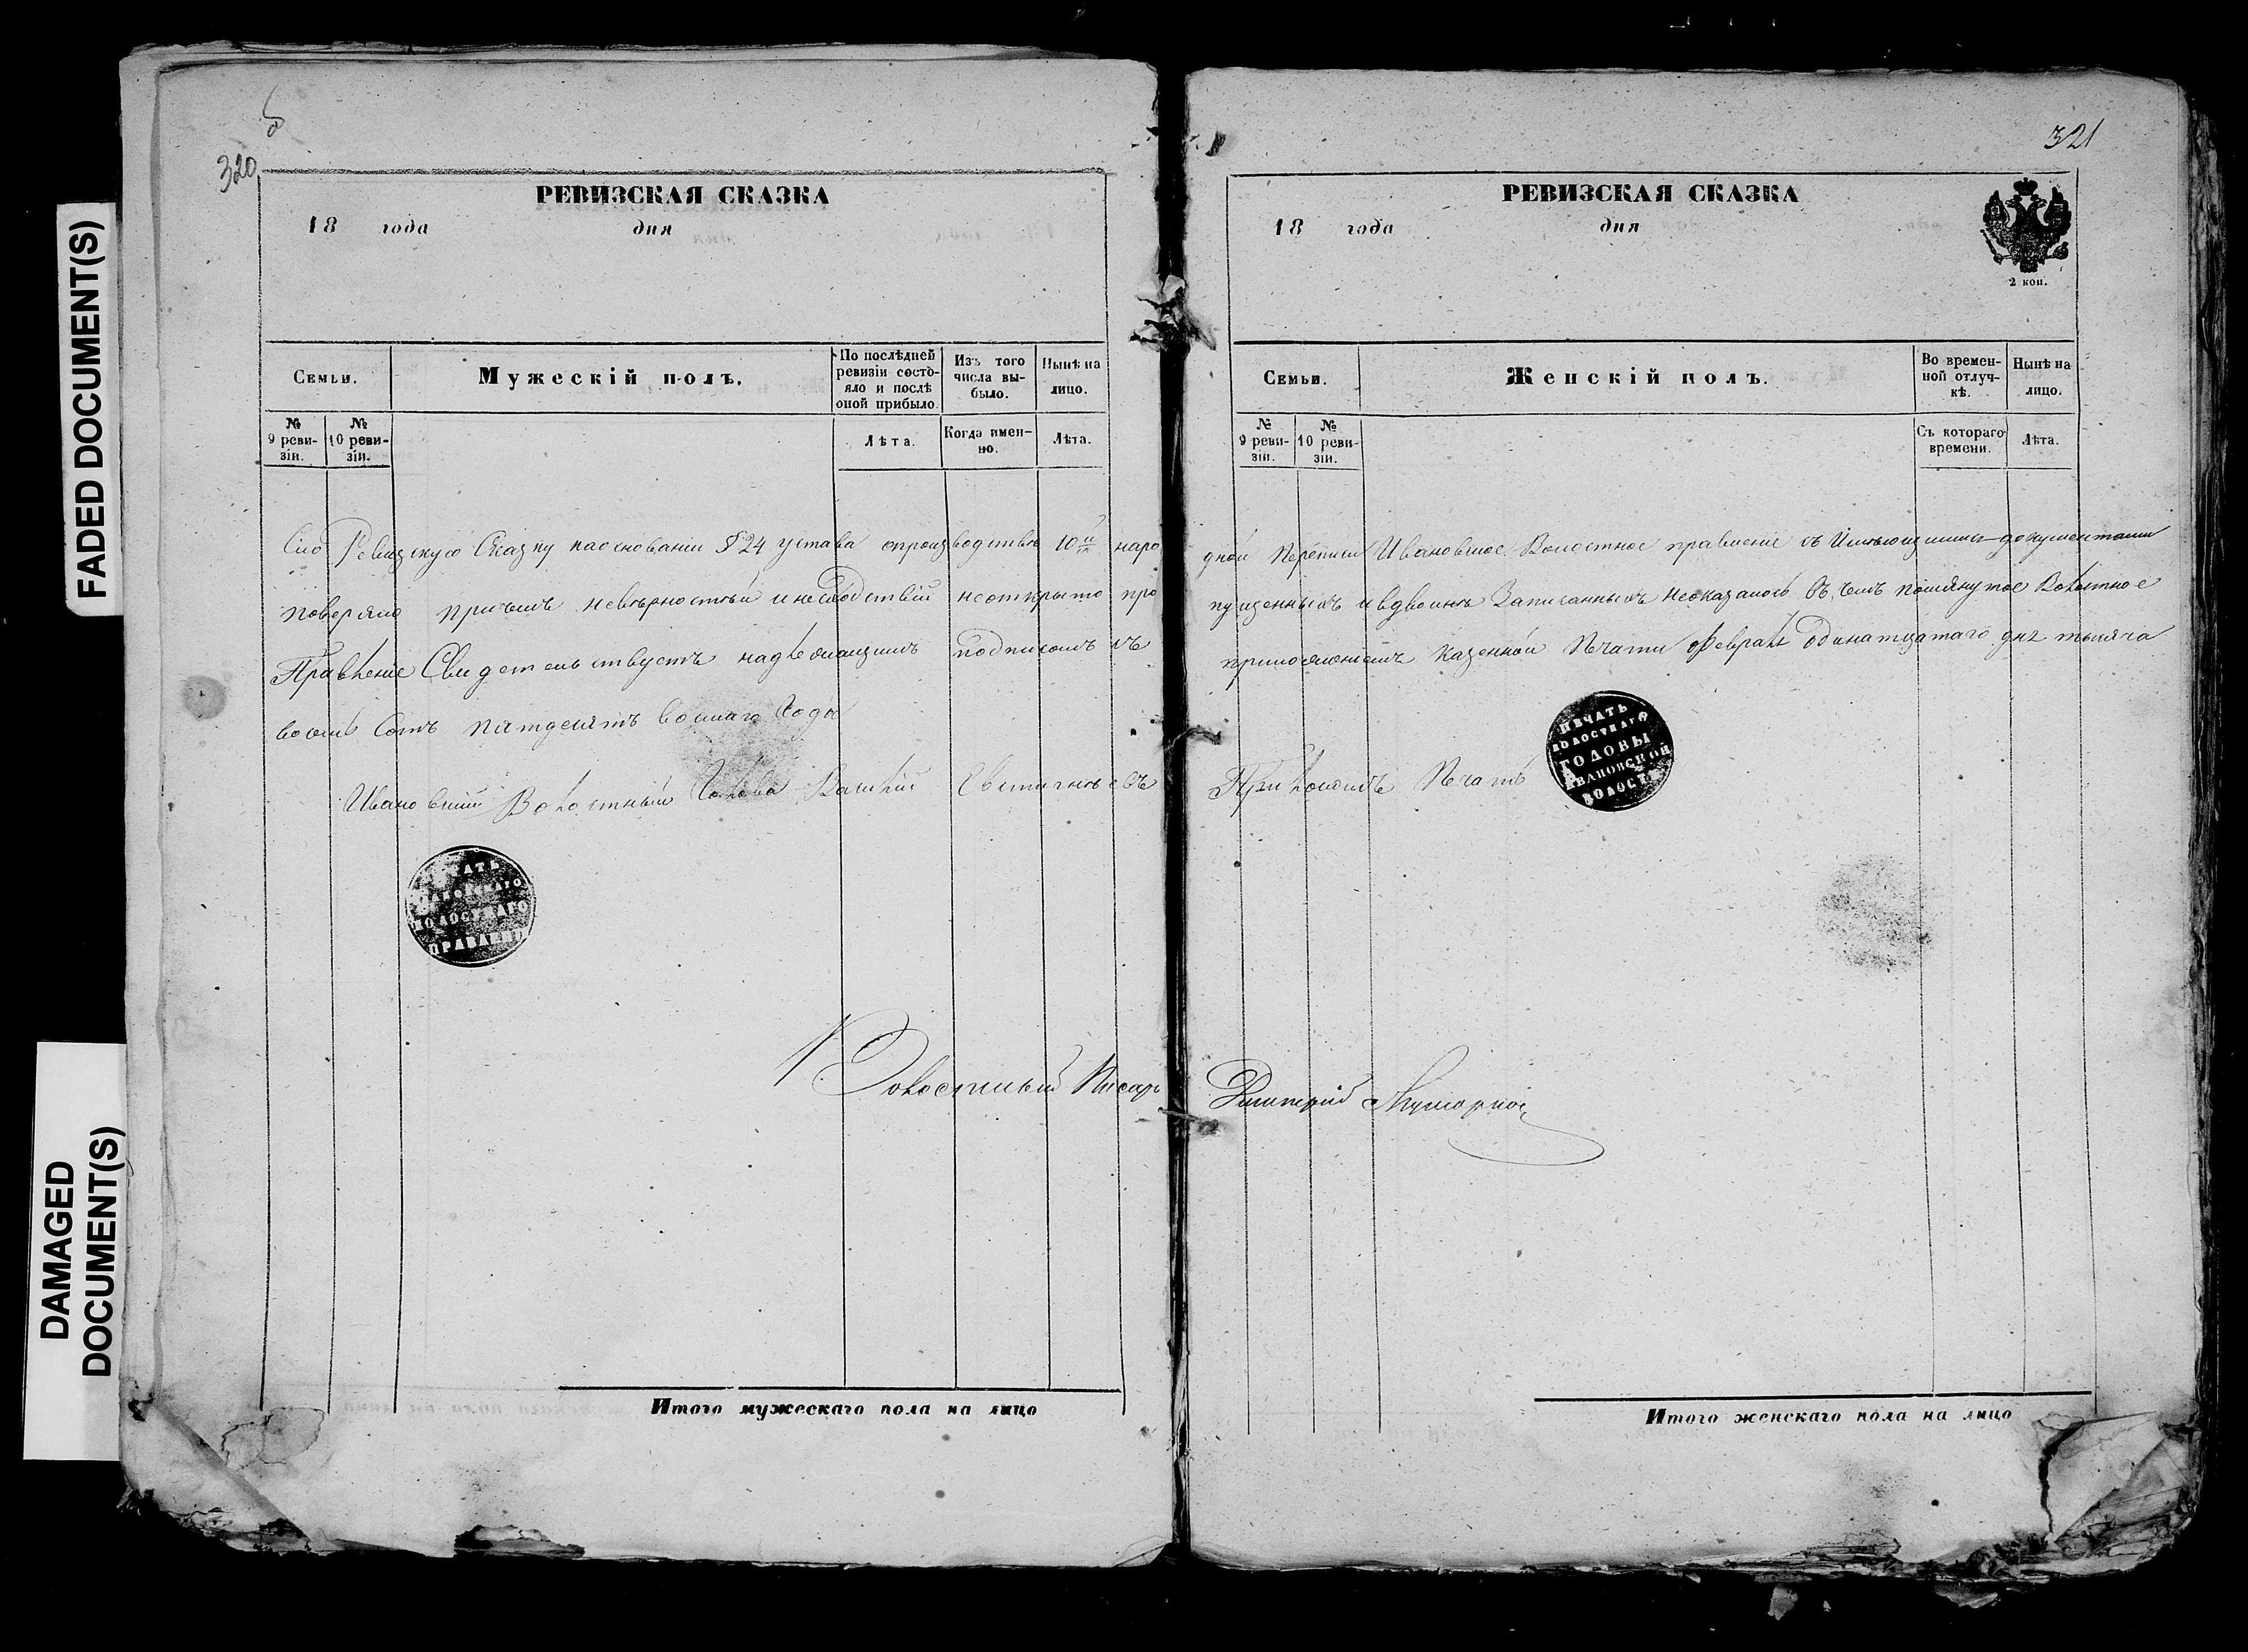 FADED DOCUMENT(S)
DAMAGED
DOCUMENT(S)
320
РЕВИЗСКАЯ СКАЗКА
18 года дня
Семьи.
Мужескій полъ.
По послѣдней ревизіи состояло и послѣ оной прибыло.
Изъ того числа выбыло.
Нынѣ на лицо.
№ 9 ревизіи.
№ 10 ревизіи.
Лѣта.
Когда именно.
Лѣта.
Сію Ревизскую Сказку наосновании § 24 устава опроизводствѣ 10й наро
поверяло причемъ невѣрностѣй инесходствій неоткрыто про
Правленіе Свидетельствуетъ надлежащимъ подписомъ съ
восемь Сотъ пятдесятъ восмаго Года
Ивановский Волостный Голова
Волостный Писарь
ПЕЧАТЬ
ВОЛОСТНАГО
ПРАВЛЕНИЯ
Итого мужескаго пола на лицо
321
РЕВИЗСКАЯ СКАЗКА
18 года дня
2 коп.
Семьи.
Женскій полъ.
Во временной отлучкѣ.
Нынѣ на лицо.
№ 9 ревизіи.
№ 10 ревизіи.
Съ котораго времени.
Лѣта.
дной переписи Ивановское Волостное правление съ Имѣющимися документами
пущенныхъ ивдвоинѣ Записанныхъ Неоказалось Въ чемъ помянутое Волостное
приложениемъ Казенной Печати Февраля Одинатцатаго дня тысяча
Приложилъ Печать
ПЕЧАТЬ
ВОЛОСТНАГО
ГОЛОВЫ
ИВАНОВСКОЙ
ВОЛОСТИ
Дмитрий
Итого женскаго пола на лицо